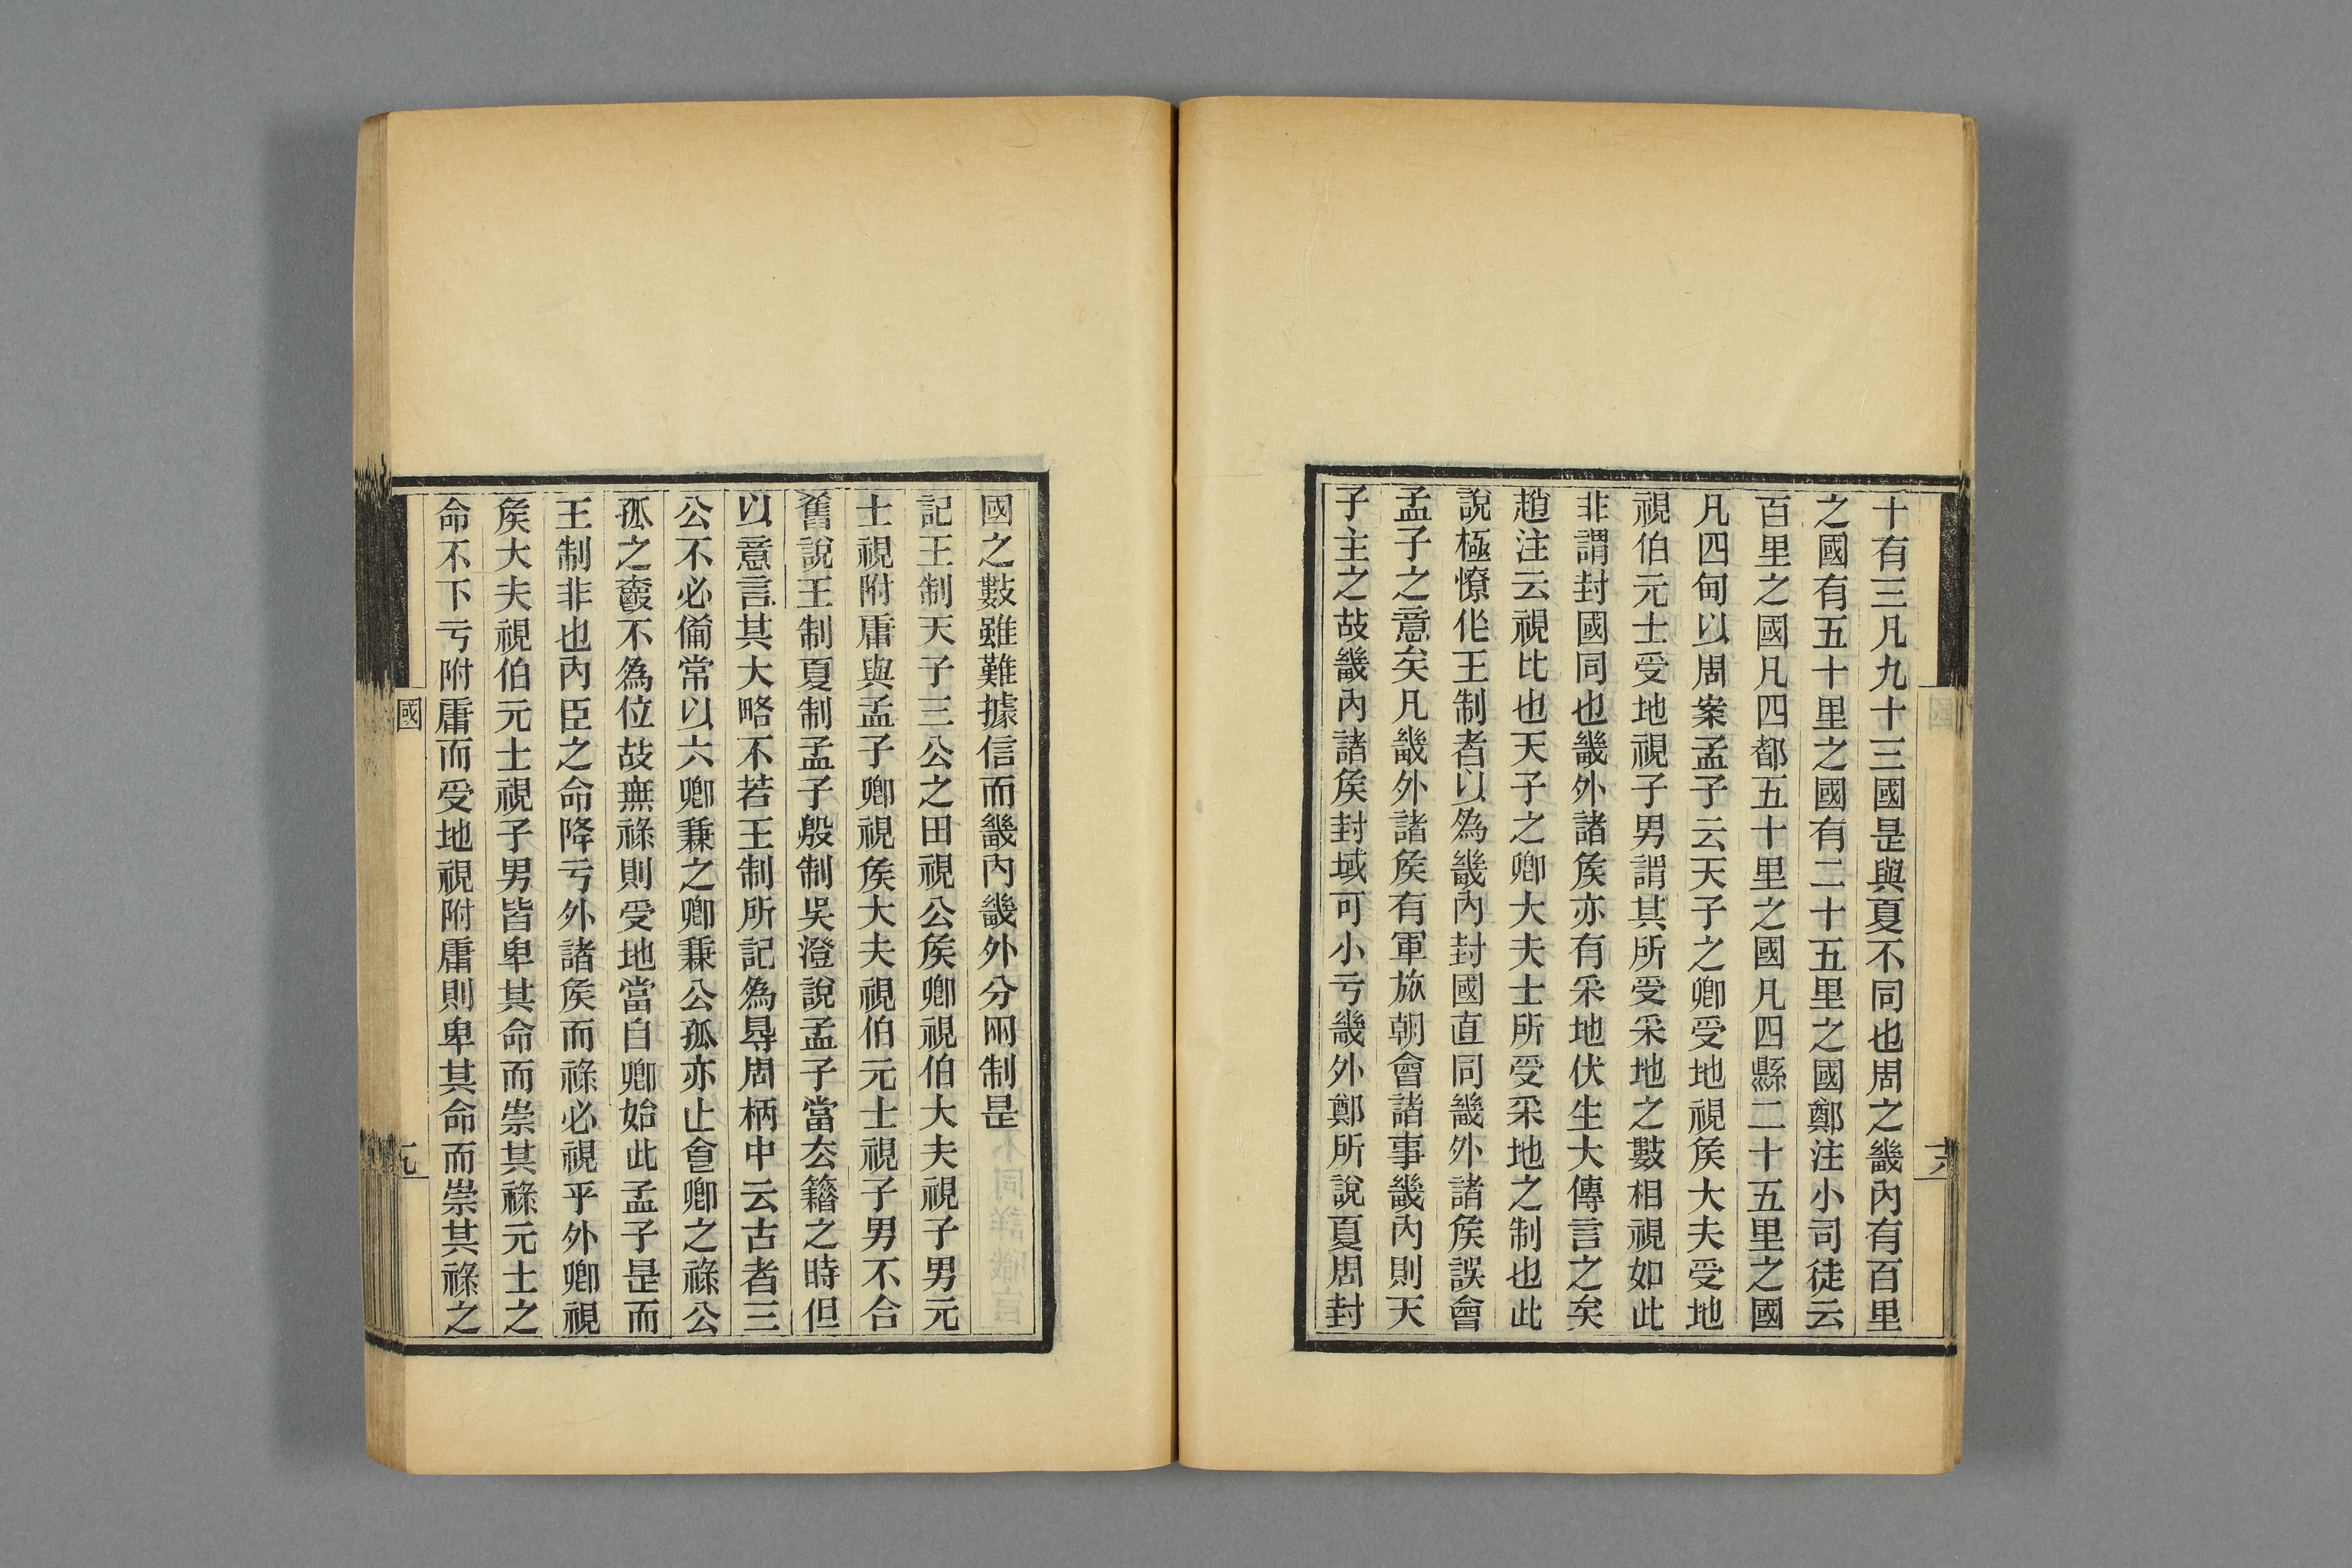 十有三凡九十三國是與夏不同也周之畿內有百里
之國有五十里之國有二十五里之國鄭注小司徒云
百里之國凡四都五十里之國凡四縣二十五里之國
凡四甸以周案孟子云天子之卿受地視矦大夫受地
視伯元士受地視子男謂其所受采地之數相視如此
非謂封國同也畿外諸矦亦有采地伏生大傳言之矣
趙注云視比也天子之卿大夫士所受采地之制也此
說極憭作王制者以爲畿內封國直同畿外諸矦誤會
孟子之意矣凡畿外諸矦有軍旅朝會諸事畿內則天
子主之故畿內諸矦封域可小亏畿外鄭所說夏周封
十八
國之數雖難據信而畿內畿外分兩制是
記王制天子三公之田視公矦卿視伯大夫視子男元
士視附庸與孟子卿視矦大夫視伯元士視子男不合
舊說王制夏制孟子殷制吳澄說孟子當厺籍之時但
以意言其大略不若王制所記爲㝵周柄中云古者三
公不必備常以六卿兼之卿兼公孤亦止食卿之祿公
孤之爵不爲位故無祿則受地當自卿始此孟子是而
王制非也內臣之命降亏外諸矦而祿必視乎外卿視
矦大夫視伯元士視子男皆卑其命而崇其祿元士之
命不下亏附庸而受地視附庸則卑其命而崇其祿之
國